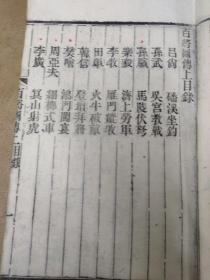 百將圖傳上目錄
呂尙 磻溪坐釣
孫武 吳宮教戰
孫臏 馬陵伏弩
樂毅 濟上勞軍
李牧 雁門縱牧
田單 火牛破敵
韓信 登壇拜將
樊噲 鴻門闖宴
周亞夫 細柳式車
李廣 冥山射虎
百將圖傳 上目錄